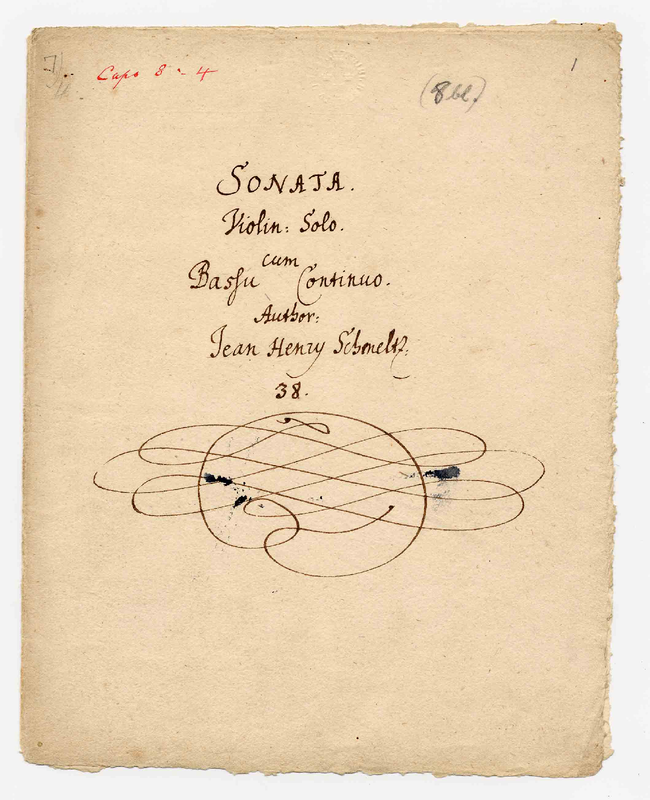 Capo 8 - 4
1
(8 bl.)
SONATA.
Violin: Solo.
cum
Bassu Continuo.
Author:
Jean Henry Schmeltz.
38.